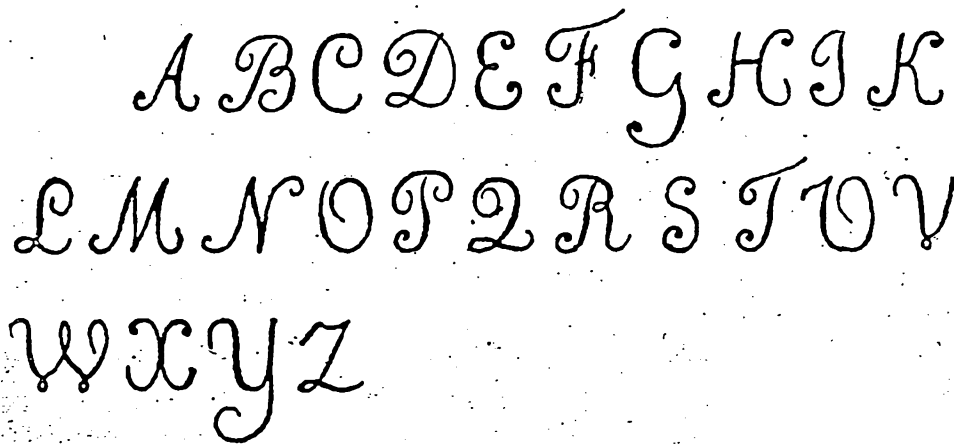 A B C D E F G H I K
L M N O P Q R S T U V
W X Y Z